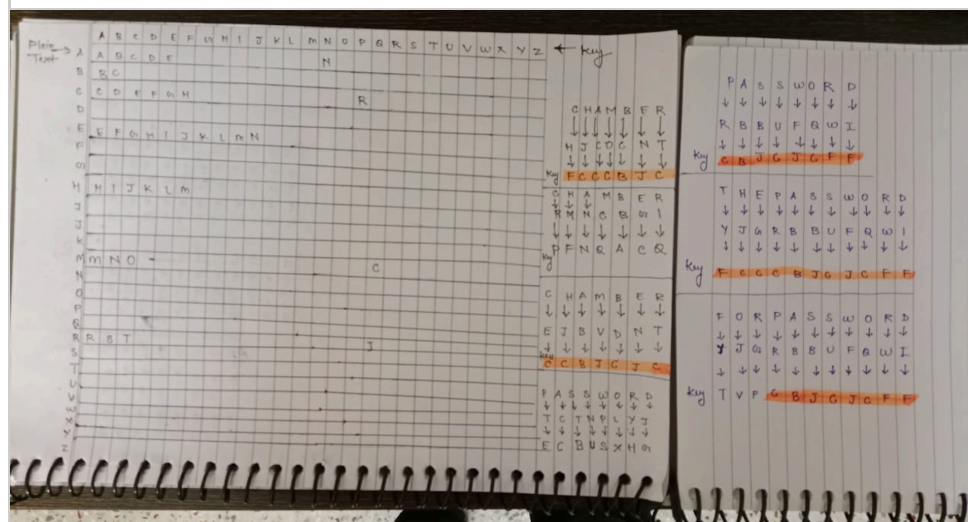 A B C D E F G H I J K L M N O P Q R S T U V W X Y Z ← Key
Plain Text →
A A B C D E N
B B C
C C D E F G H R
D
E E F G H I J K L M N
F
G
H H I J K L M
I
J
K
M M N O - C
N
O
P
Q
R R B T J
S
T
U
V
W
X
Y
Z
C H A M B E R
H J C O C N T
Key F C C C B J C
C H A M B E R
R M N C B G I
Key P F N Q A C Q
C H A M B E R
E J B V D N T
Key C C B J C J C
P A S S W O R D
T C T N P L Y J
E C B U S X H G
P A S S W O R D
R B B U F Q W I
Key C B J C J C F F
T H E P A S S W O R D
Y J G R B B U F Q W I
Key F C C C B J C J C F F
F O R P A S S W O R D
Y J G R B B U F Q W I
Key T V P C B J C J C F F